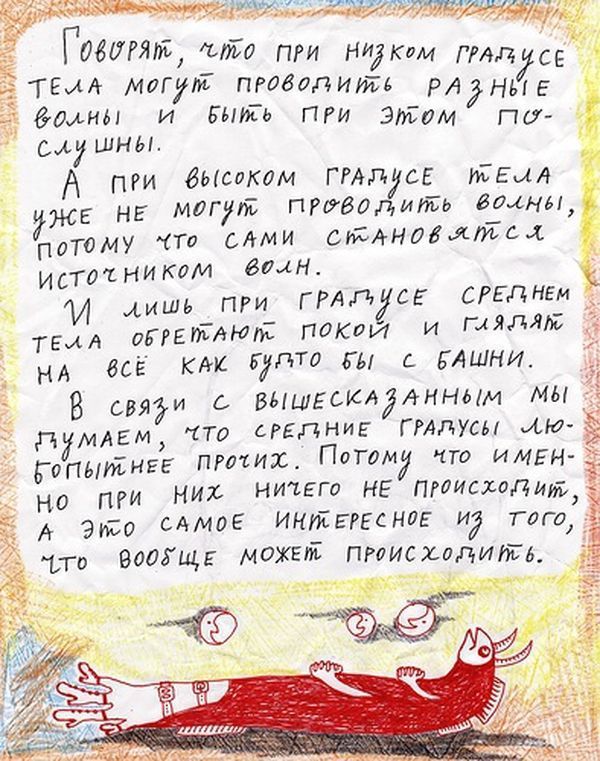 Говорят, что при низком градусе
тела могут проводить разные
волны и быть при этом по-
слушны.
А при высоком градусе тела
уже не могут проводить волны,
потому что сами становятся
источником волн.
И лишь при градусе среднем
тела обретают покой и глядят
на всё как будто бы с башни.
В связи с вышесказанным мы
думаем, что средние градусы лю-
бопытнее прочих. Потому что имен-
но при них ничего не происходит,
а это самое интересное из того,
что вообще может происходить.